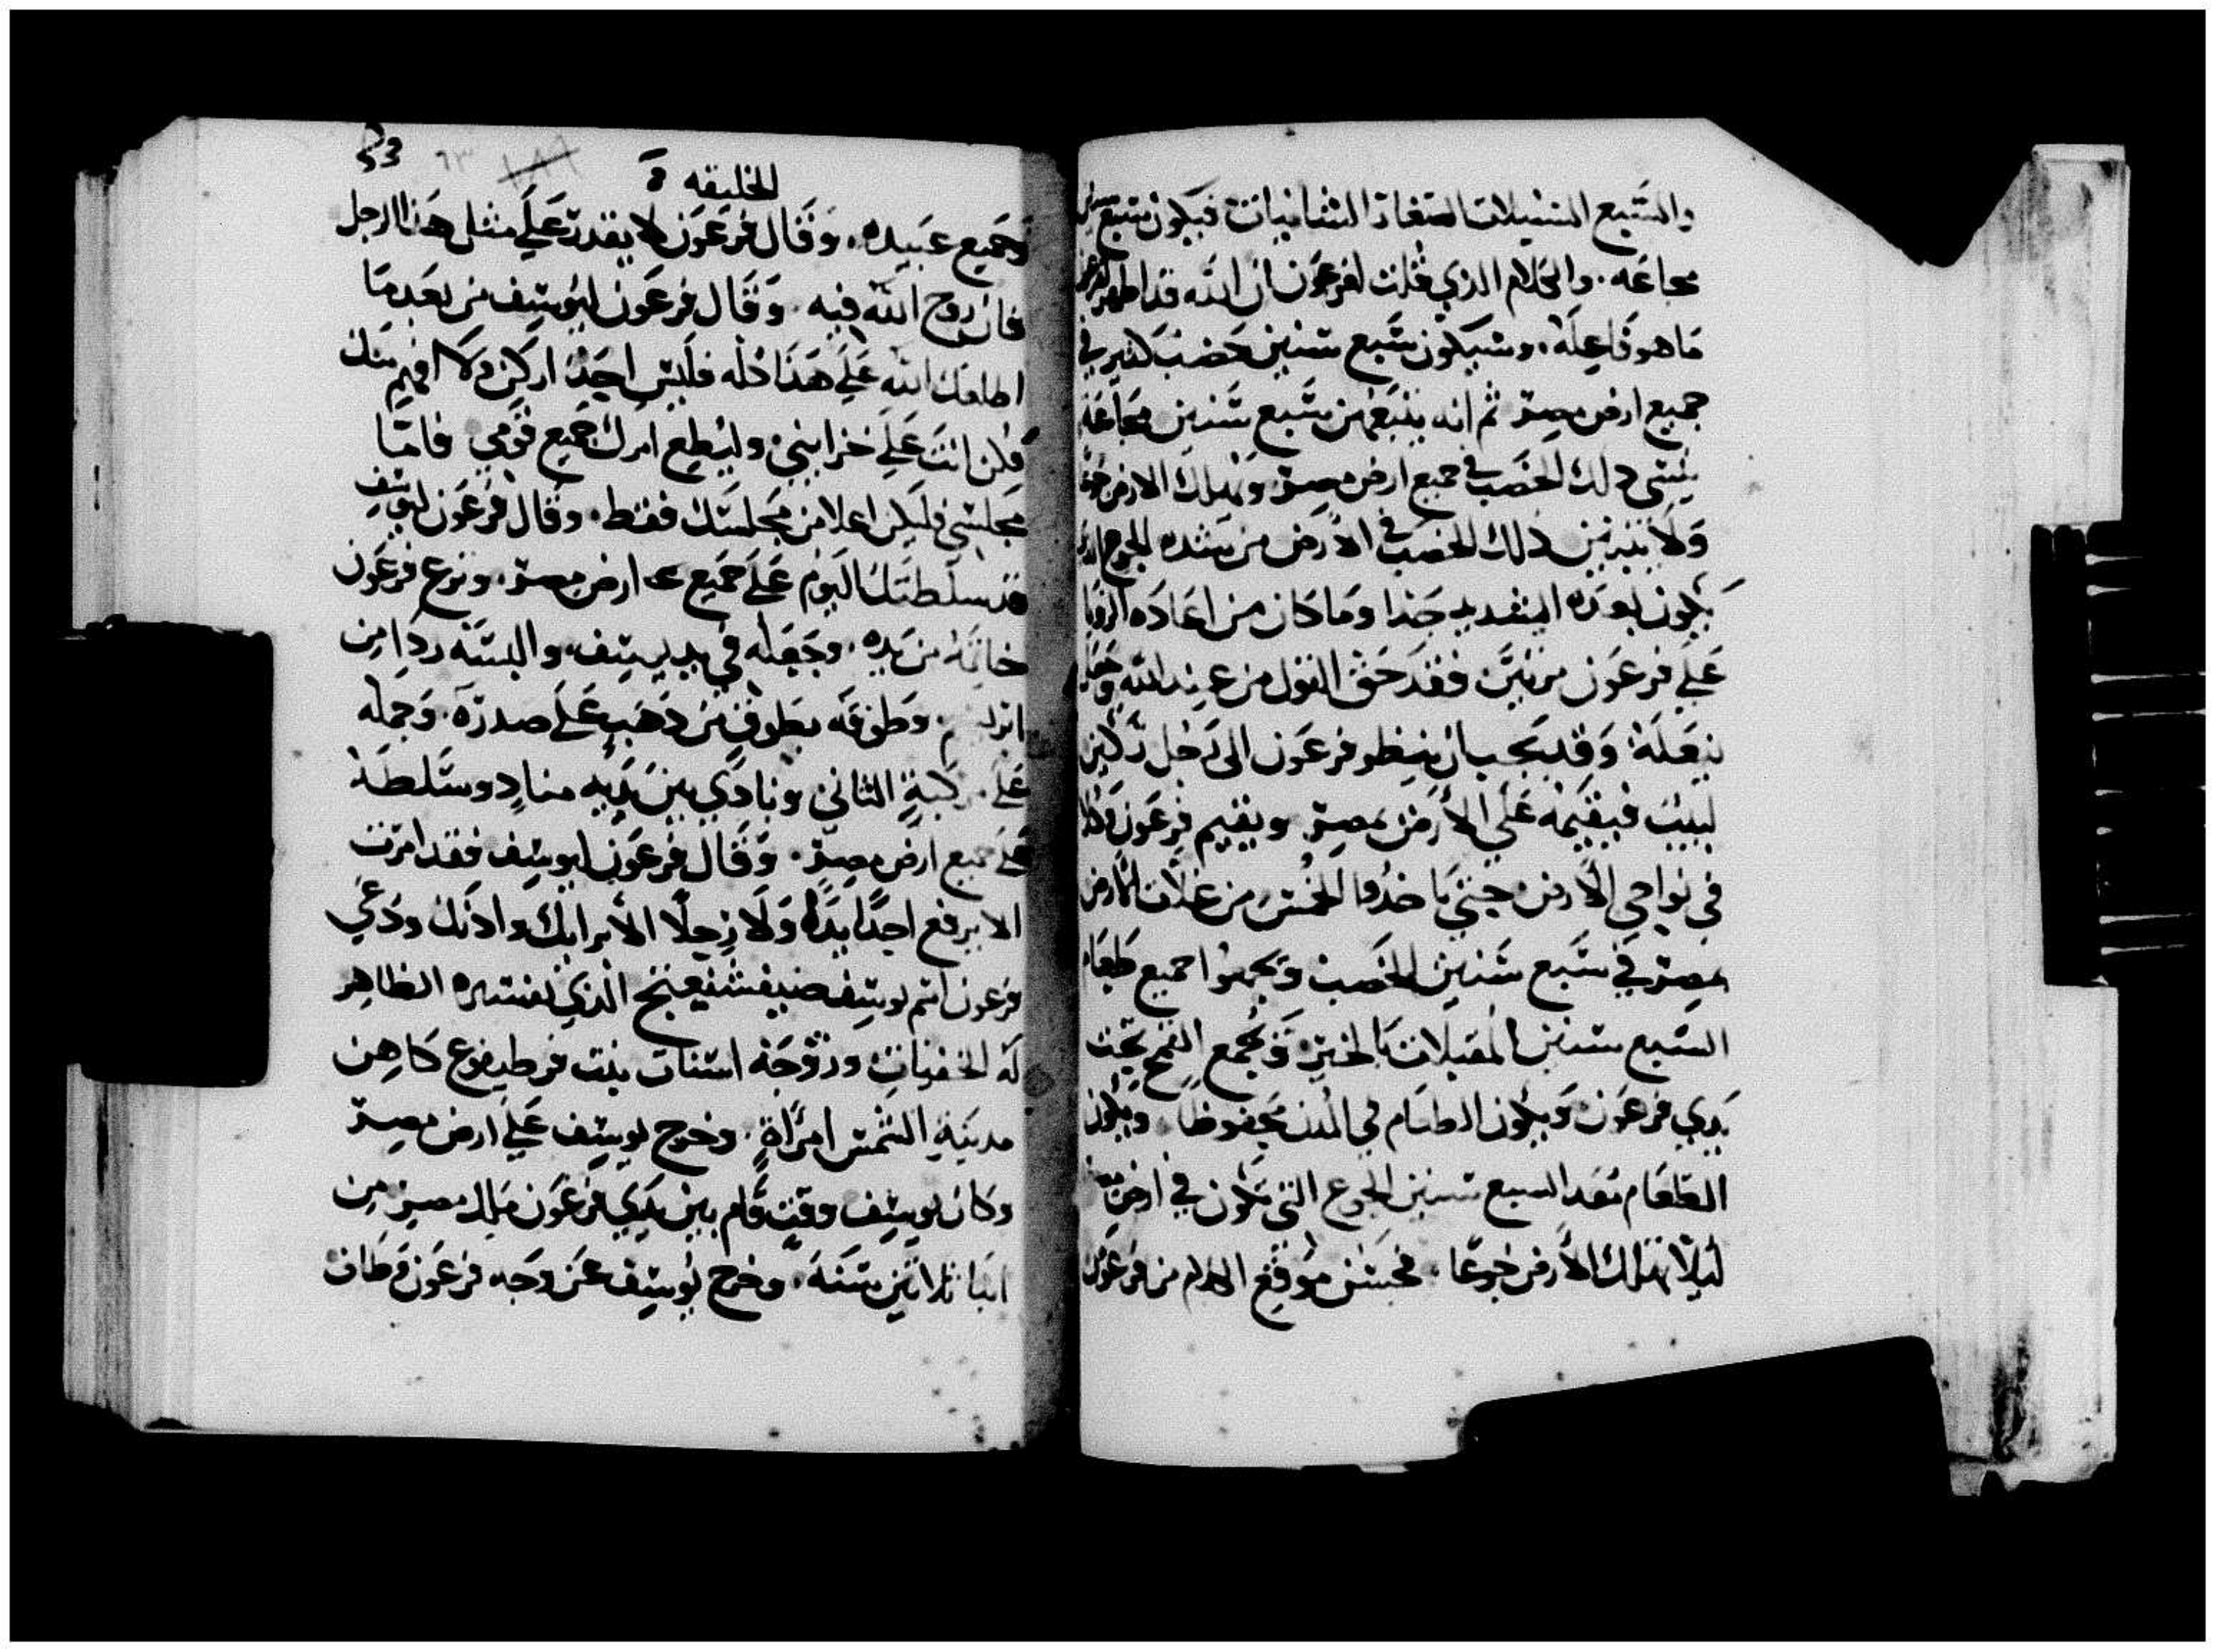 والسبع السنبلات الصغار الشانيات فيكون سبع سنين
مجاعه . والكلام الذي قلت لفرعون ان الله قد اظهر لفرعون
ما هو فاعله . وسيكون سبع سنين خصب كثير في
جميع ارض مصر ثم انه يتبعهن سبع سنين مجاعة
ينسى ذلك الخصب في جميع ارض مصر وتهلك الارض جوعًا
ولا يتبين ذلك الخصب في الارض من شده الجوع الذي
يكون بعده لانه شديد جدا وما كان من اعاده الرؤيا
على فرعون مرتين فقد حق القول من عند الله وعجل
بفعله وقد يجب ان ينظر فرعون الى رجل ركين
لبيب فيقيمه على الارض بمصر ويقيم فرعون وكلا
في نواحي الارض حتى ياخذوا الخمس من غلات الارض
بمصر في سبع سنين الخصب ويجمعوا جميع طعام
السبع سنين المقبلات بالخير ويجمع القمح تحت
يدي فرعون ويكون الطعام في المدن محفوظا . ويكون
الطعام بعد السبع سنين الجوع التي تكون في ارض مصر
ليلا تهلك الارض جوعا . فحسن موقع الكلام من فرعون
الخليقه
53 ٦٣ ١٨٩
وجميع عبيده . وقال فرعون لا يقدر على مثل هذا الرجل
فان روح الله فيه . وقال فرعون ليوسف من بعد ما
اطلعك الله على هذا كله فليس احد اركن ولا افهم منك
فكن انت على خزايني وليطيع امرك جميع قومي فامّا
مجلسي فليكن اعلا من مجلسك فقط . وقال فرعون ليوسف
قد سلطتك اليوم على جميع ارض مصر . ونزع فرعون
خاتمه من يده . وجعله في يد يوسف والبسه ردا من
وطوقه بطوق من ذهب على صدره . وحمله
على مركبة الثاني ونادى بين يديه مناد وسلطه
على جميع ارض مصر . وقال فرعون ليوسف فقد امرت
الا يرفع احد يده ولا رجلا الا برايك واذنك ودعي
فرعون اسم يوسف صنيفشفيعنخ الذي تفسيره الظاهر
له الخفيات وزوجه اسنات بنت فوطيفوع كاهن
مدينة الشمس امراة . وخرج يوسف على ارض مصر
وكان يوسف وقت قام بين يدي فرعون ملك مصر من
ابنا ثلاثين سنة . وخرج يوسف من وجه فرعون وطاف